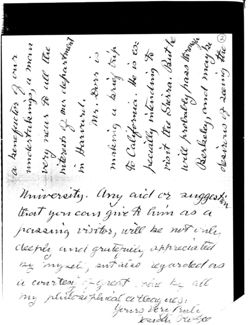 a benefactor of our
undertakings, a man
very near to all the
interests of our department
in Harvard.
Mr. Dorr is
making a brief trip
to California. He is es-
pecially intending to
visit the Sierra. But he
will probably pass through
Berkeley, and may be
desirous of seeing the
University. Any aid or suggestion
that you can give to him as a
passing visitor, will be not only
deeply and gratefully appreciated
by myself, but also regarded as
a courtesy by all
my philosophical colleagues.
Yours Very Truly
Josiah Royce